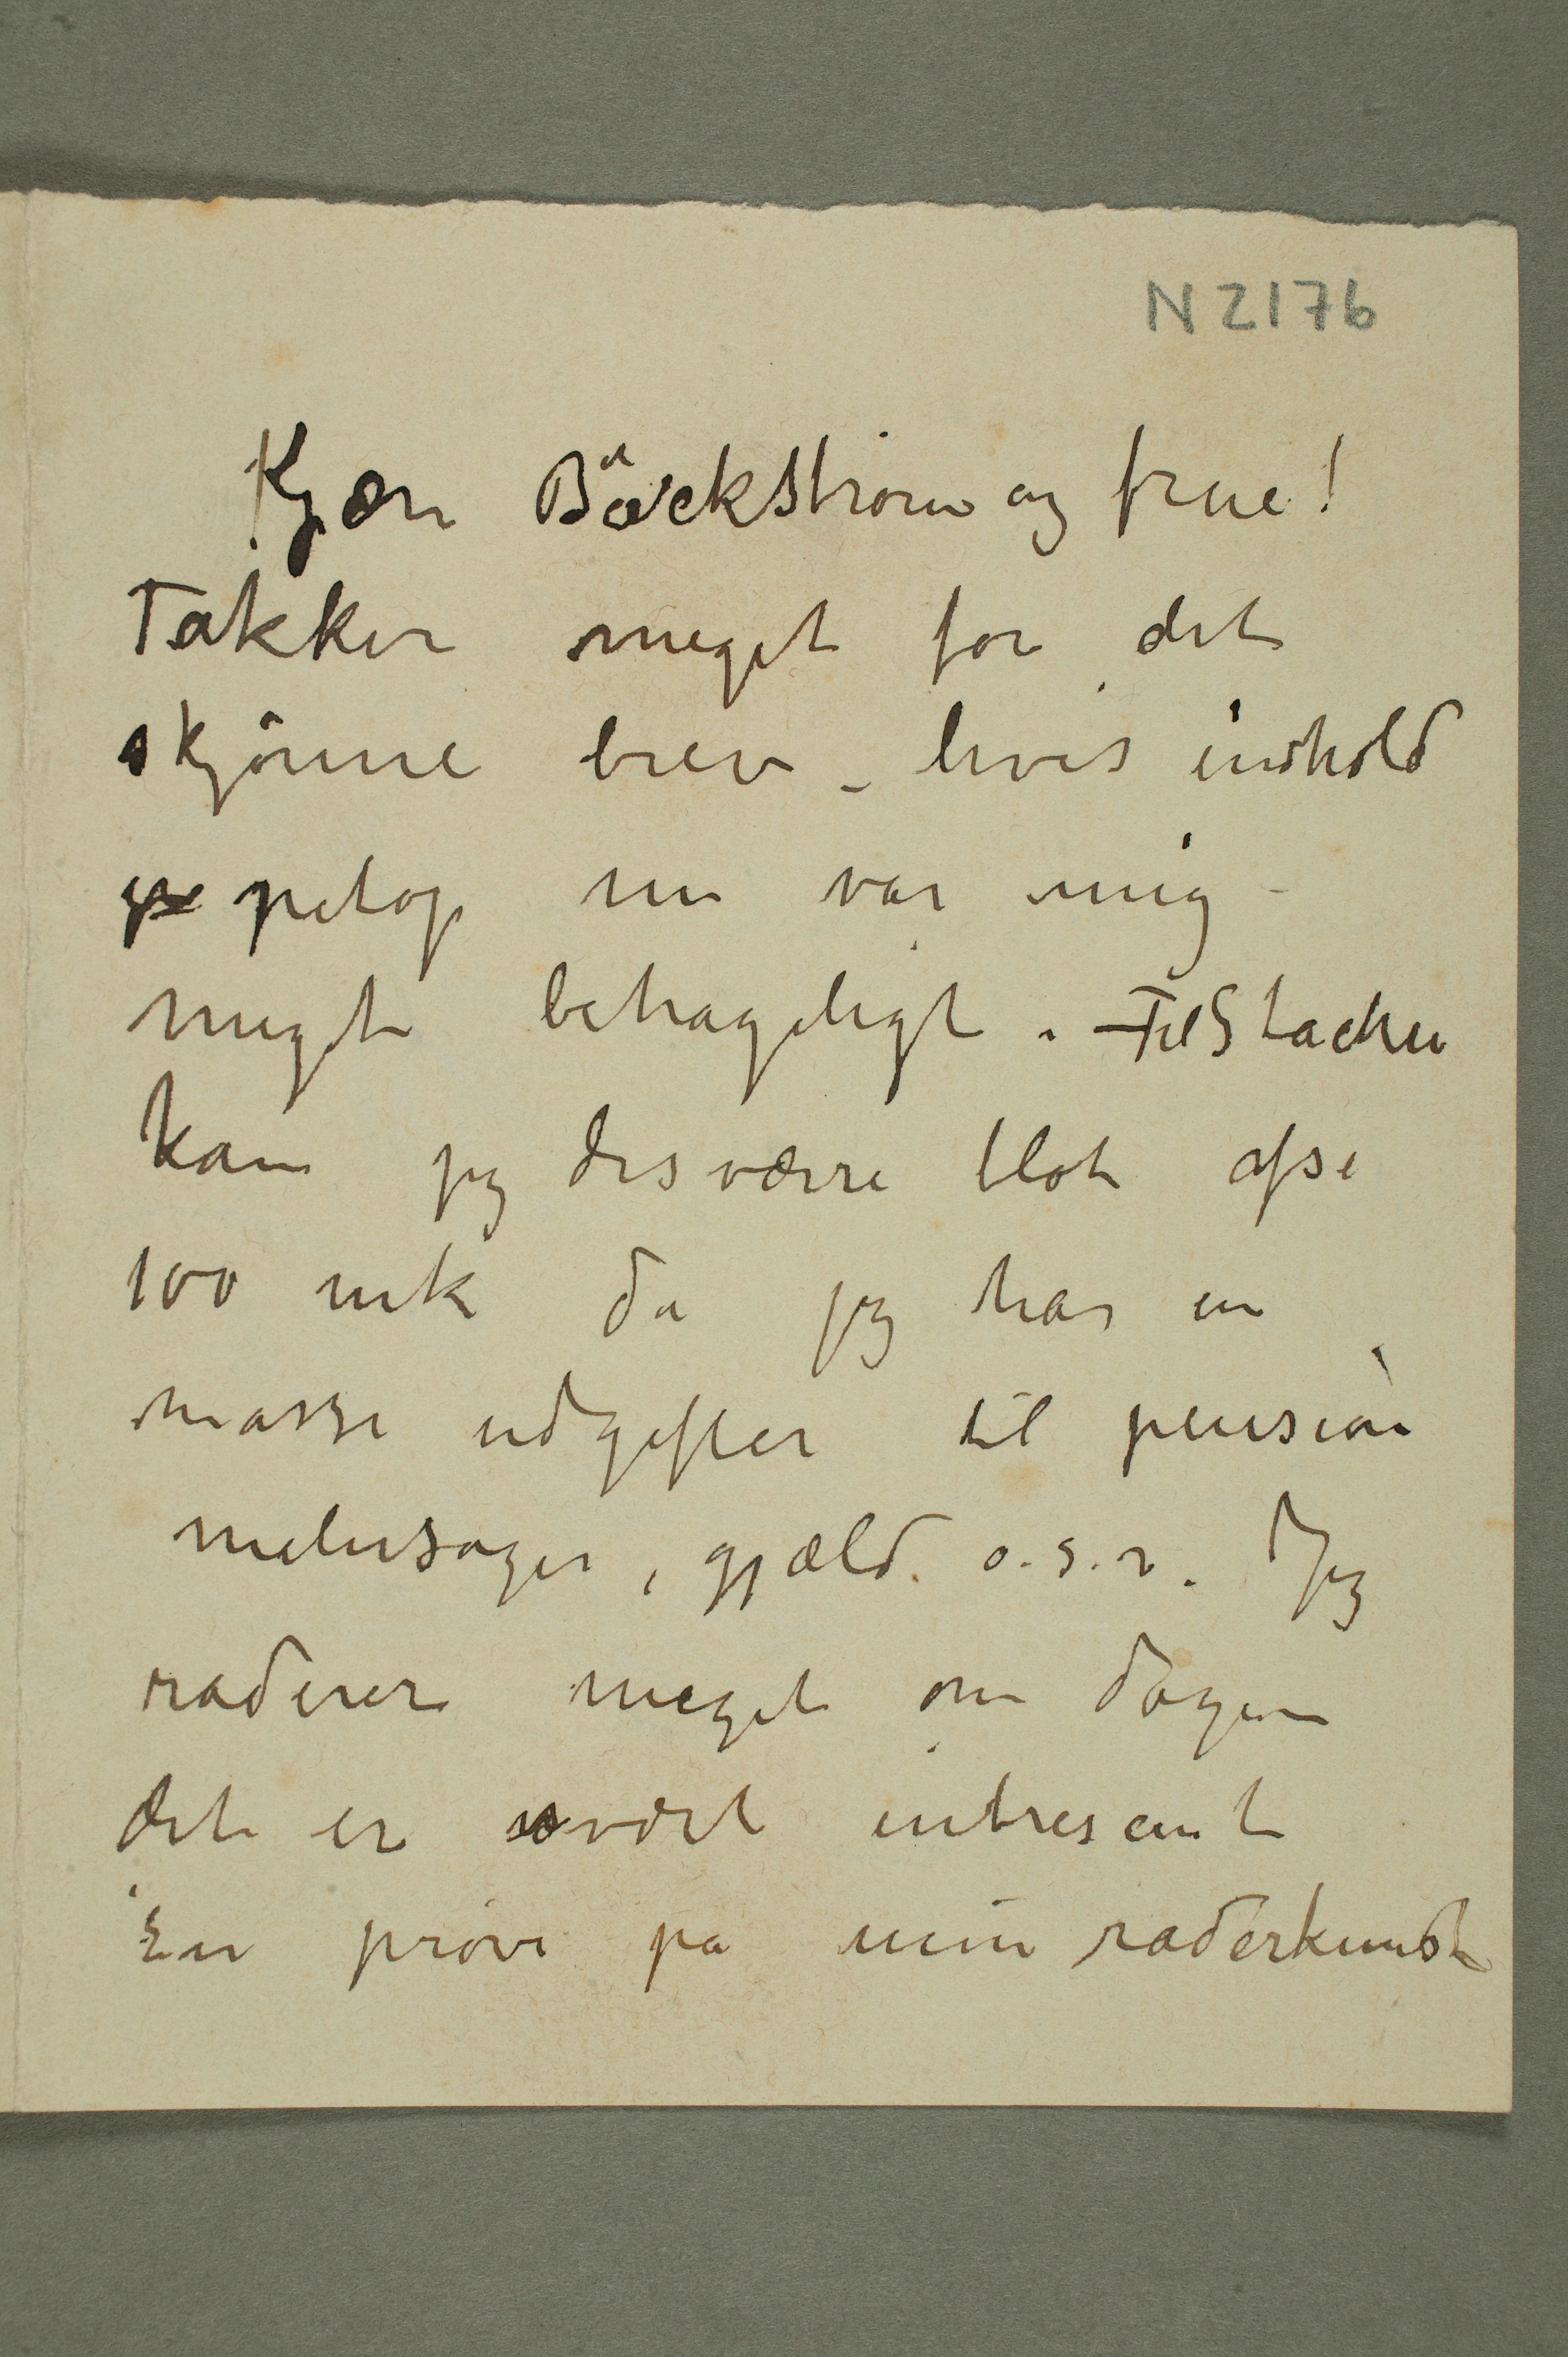 N 2176
Kjære Bäckström og frue!
Takker meget for det
skjönne brev – hvis indhold
netop nu var mig
meget behageligt. – Til Stachu
kan jeg desværre blot afse
100 mk da jeg har en
masse udgifter til pension
malersager, gjæld. o.s.v. Jeg
raderer meget om dagen
det er svært intresant
En prøve på min raderkunst